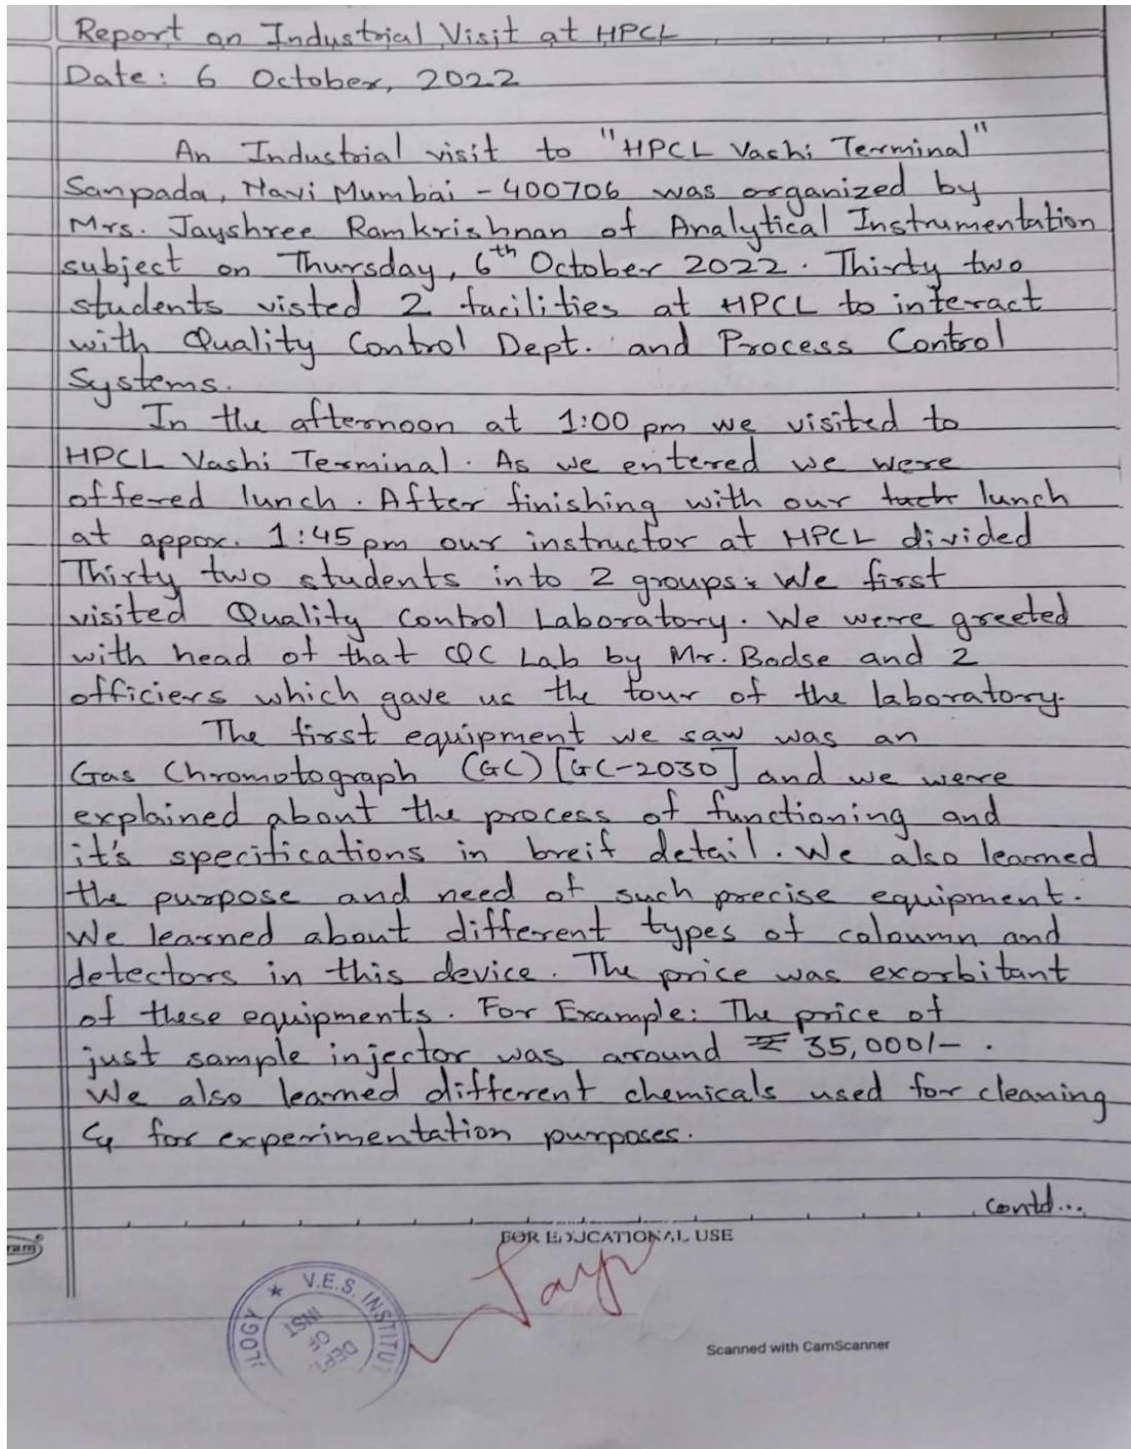 Report on Industrial Visit at HPCL
Date: 6 October, 2022
An Industrial visit to "HPCL Vashi Terminal"
Sanpada, Navi Mumbai - 400706 was organized by
Mrs. Jayshree Ramkrishnan of Analytical Instrumentation
subject on Thursday, 6th October 2022. Thirty two
students visted 2 facilities at HPCL to interact
with Quality Control Dept. and Process Control
Systems.
In the afternoon at 1:00 pm we visited to
HPCL Vashi Terminal. As we entered we were
offered lunch. After finishing with our lunch
at appox. 1:45 pm our instructor at HPCL divided
Thirty two students into 2 groups. We first
visited Quality Control Laboratory. We were greeted
with head of that QC Lab by Mr. Bodse and 2
officiers which gave us the tour of the laboratory.
The first equipment we saw was an
Gas Chromotograph (GC) [GC-2030] and we were
explained about the process of functioning and
it's specifications in breif detail. We also learned
the purpose and need of such precise equipment.
We learned about different types of coloumn and
detectors in this device. The price was exorbitant
of these equipments. For Example: The price of
just sample injector was around ₹ 35,000/- .
We also learned different chemicals used for cleaning
& for experimentation purposes.
contd...
FOR EDUCATIONAL USE
V.E.S. INSTITU
LOGY
DEPT. OF INST
Scanned with CamScanner